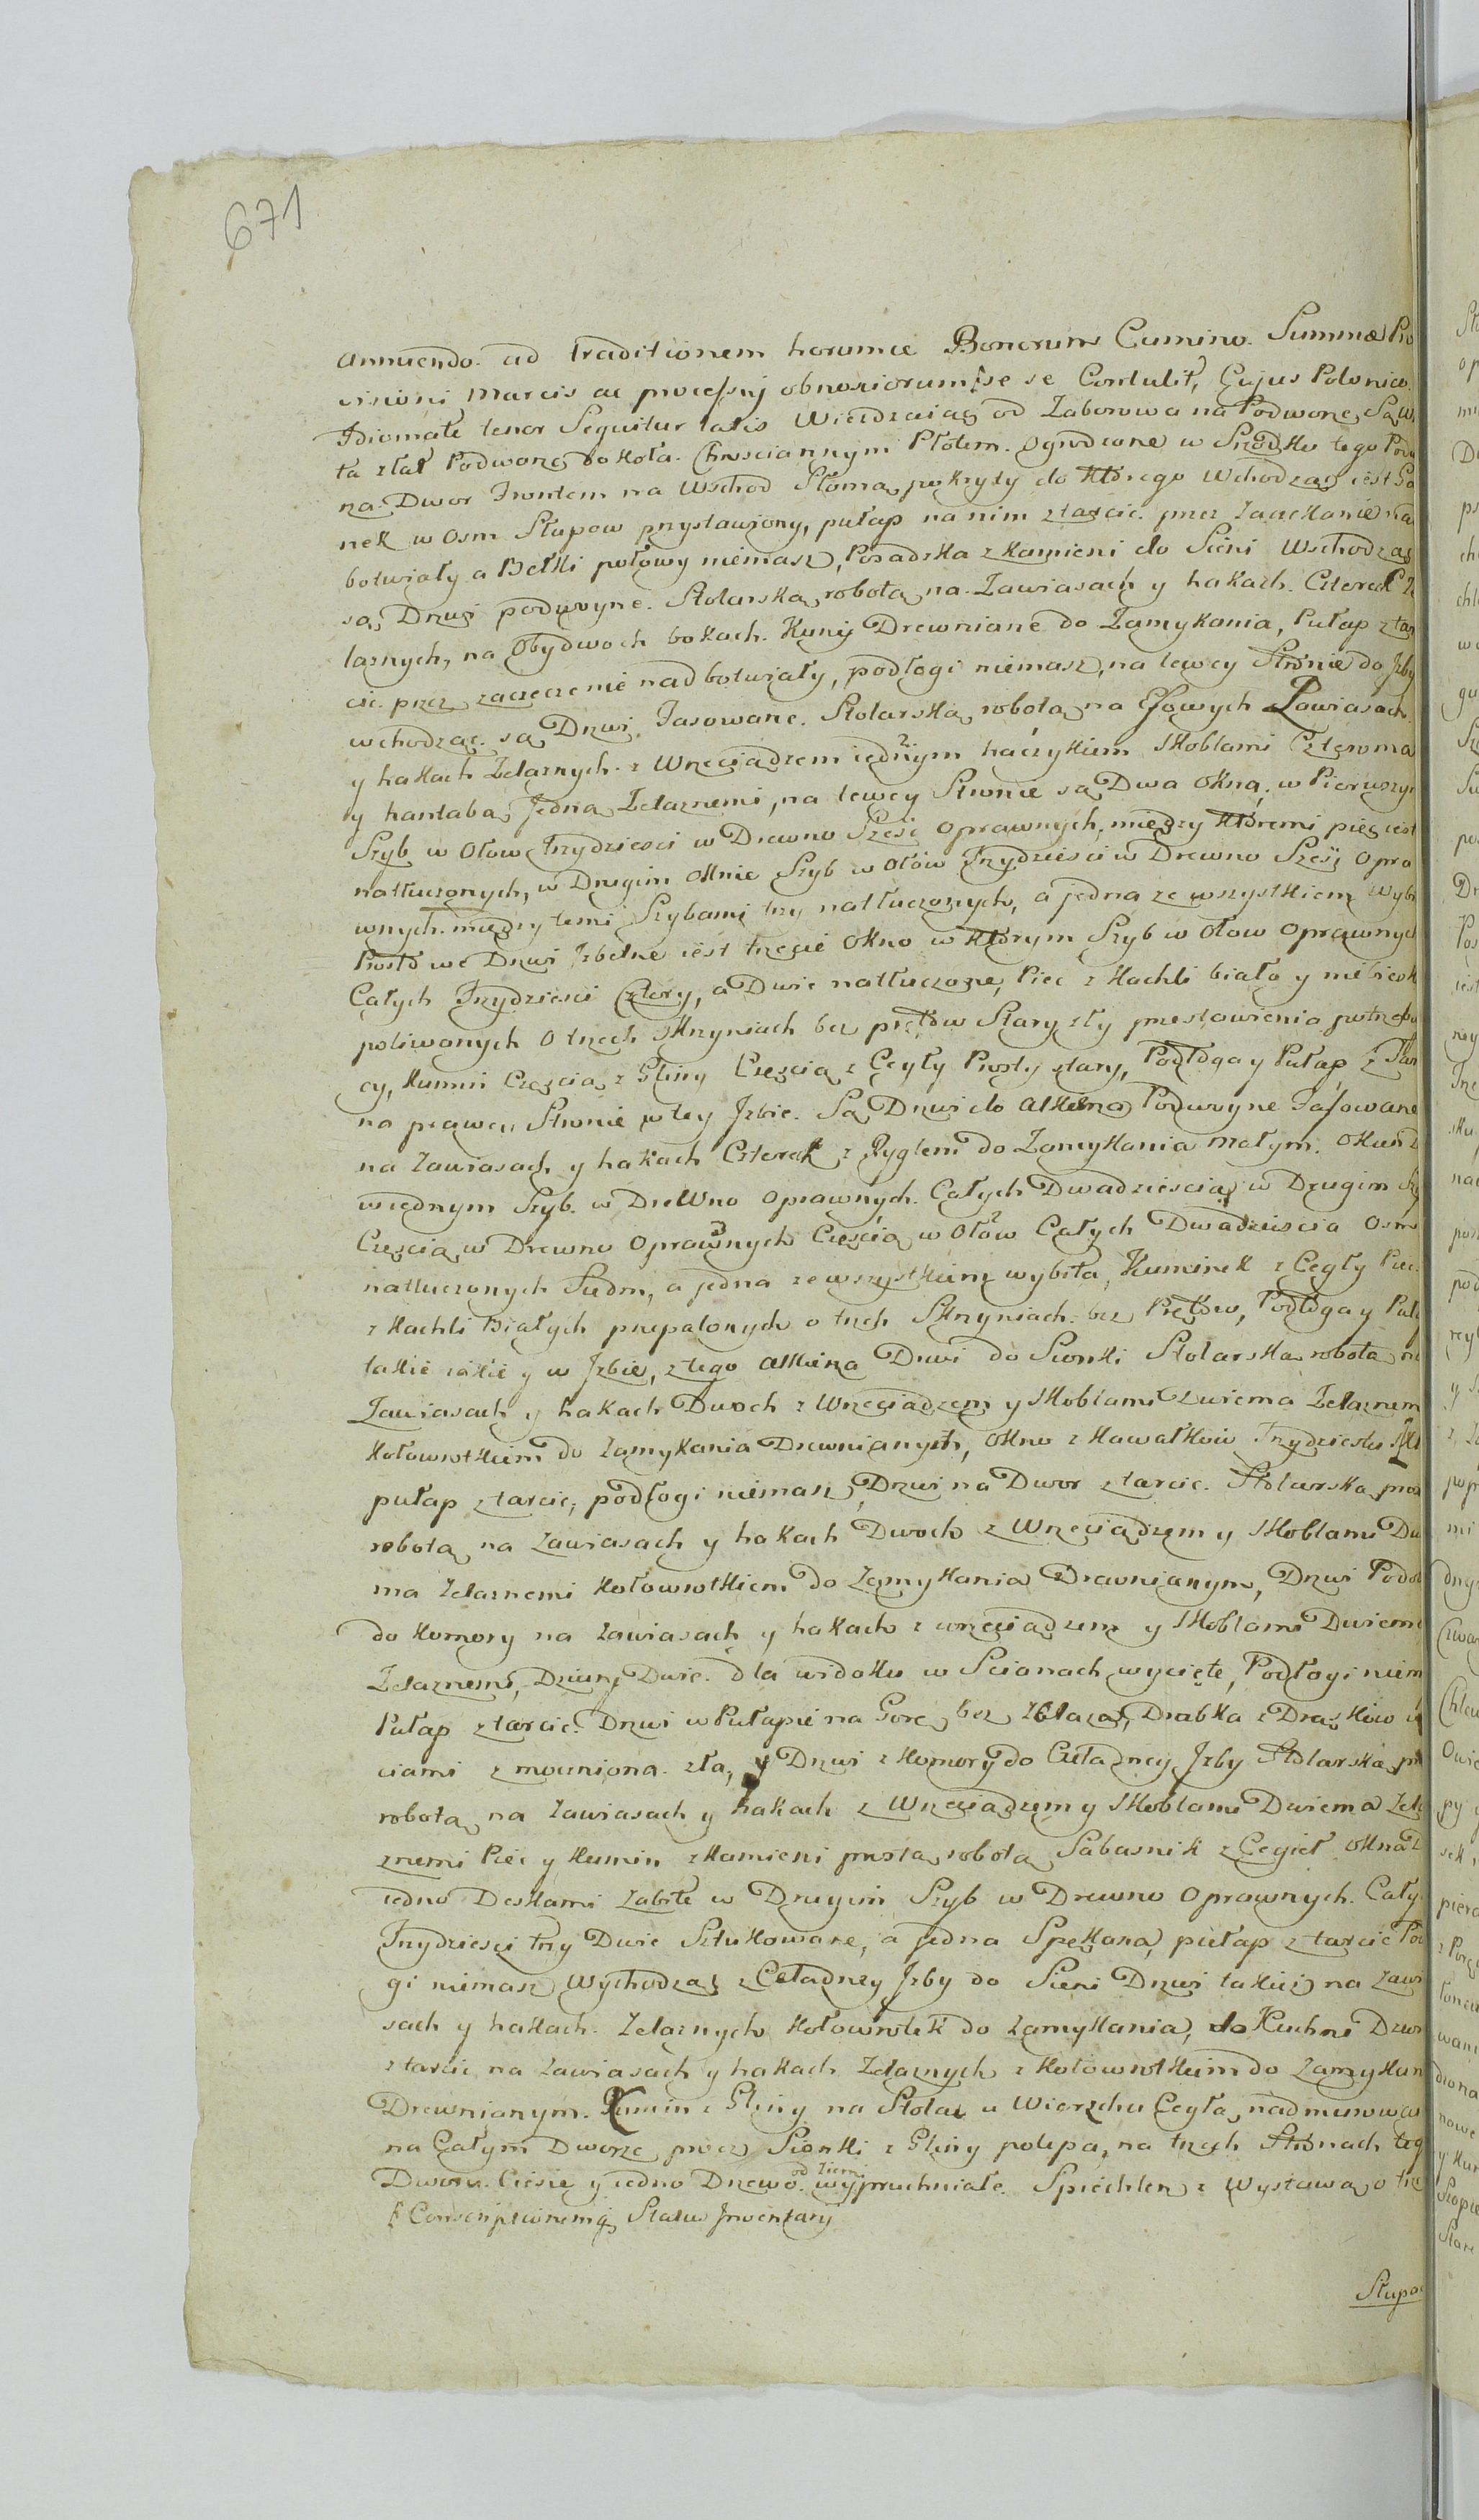 671
annuendo. ad traditionem horumce Bonorum Cumino. Summæ Pro
visioni Marcis ac processuj obnoxiorum se se Contulit, Cujus Polonico.
Idiomate tenor Sequitur talis Wieżdzaiąc od Zaborowa na Podworze, Są W
ta z łat Podworze do koła. Chrusciannym Płotem. ogrodzone w Srzodku tego Podw
na. Dwor Frontem na Wschod Słomą pokryty do którego Wchodząc iest Ga
nek w Osm Słupow przystawiony, pułap na nim z tarcic. przez Zaciekanie na
botwiały a Belki połowy niemasz, Posadzka z kamieni do Sieni Wschodząc
są, Drzwi podwoyne. Stolarską robotą na. Zawiasach y hakach. Czterech Że
laznych, na Obydwoch bokach. Kuny Drewniane do Zamykania, Pułap z tar
cic. przez zacieczenie nadbotwiały, podłogi niemasz, na lewey Stronie do Jzby
wchodząc. są Drzwi Fasowane. Stolarską robotą na Esowych Zawiasach
y hakach Żelaznych. z Wrzeciądzem iednym haczykiem Skoblami Czterma
y hantabą Jedną Żelaznemi, na lewey Stronie są Dwa okna, w Pierwszym
Szyb w ołow trzydziesci w Drewno Szesc oprawnych, między któremi pięc iest
natłuczonych, w Drugim oknie Szyb w ołów Trzydziesci w Drewno Szesc opra
wnych. między temi Szybami trzy natłuczonych, a jedna ze wszystkiem wybi
Prosto we Drzwi Jzbetne iest trzecie okno w którym Szyb w ołow oprawnych
Całych Trzydziesci Cztery, a Dwie natłuczone, Piec z kachli biało y niebiesk
poliwanych o trzech skrzyniach bez prętów Stary zły przestawienia potrzebu
cy, Kumin Częscią z Gliny Częscią z Cegły Prosty stary, Podłoga y Pułap z Tar
na prawey Stronie w tey Jzbie. Są Drzwi do Alkierza Podwoyne Fasowane
na Zawiasach y hakach Czterech z Ryglem do Zamykania małym. okien
w iednym Szyb. w Drewno oprawnych. Całych Dwadziescia w Drugim Szy
Częscią w Drewno oprawnych Częscią w ołów Całych Dwadziescia Osm
natłuczonych Siedm, a jedna ze wszystkiem wybita, Kuminek z Cegły Piec.
z kachli Białych przepalonych o trzech Skrzyniach. bez Prętow, Podłoga y Puła
takie iakie y w Jzbie, z tego alkierza Drzwi do Sionki Stolarską robotą na
Zawiasach y hakach Dwoch z Wrzeciądzem y Skoblami Dwiema Żelaznem
Kołowrotkiem do Zamykania Drewnianym, okno z kawałkow Trzydziestu
pułap z tarcic, podłogi niemasz, Drzwi na Dwor z tarcic. Stolarską pros
robotą na zawiasach y hakach Dwoch z Wrzeciądzem y Skoblami Dw
ma Żelaznemi Kołowrotkiem do Zamykania Drewnianym, Drzwi Podob
do Komory na zawiasach y hakach z wrzeciądzem y Skoblami Dwiem
Żelaznemi, Dziury Dwie. dla widoku w Scianach wycięte, Podłogi niem
Pułap z tarcic. Drzwi w Pułapie na Gorę, bez żelaza, Drabka z Drążkow
ciami zmocniona. zła, y Drzwi z Komory do Czeladney Jzby Stolarską pr
robotą na Zawiasach y hakach z Wrzeciądzem y Skoblami Dwiema Żela
znemi Piec y Kumin z kamieni prostą robotą Sabasnik z Cegieł okna
iedno Deskami Zabite w Drugim Szyb w Drewno oprawnych. Cały
Trzydziesci trzy Dwie Sztukowane, a jedna Spękana, pułap z tarcic Pod
gi niemasz Wychodząc z Czeladney Jzby do Sieni Drzwi takiez na Zawi
sach y hakach. Żelaznych kołowrotek do zamykania, do Kuchni Drzw
z tarcic na Zawiasach y hakach Żelaznych z kołowrotkiem do Zamykan
Drewnianym. Kumin z Gliny na Stolcu u Wierzchu Cegłą nadmurowan
na Całym Dworze procz Sionki z Gliny polepa, na trzech Stronach teg
Dworu. Ciesie y iedno Drzewo. od Ziemi wypruchniałe. Spichlerz z Wystawą o trz
Conscriptionemq Status Jnventarij
Słupa